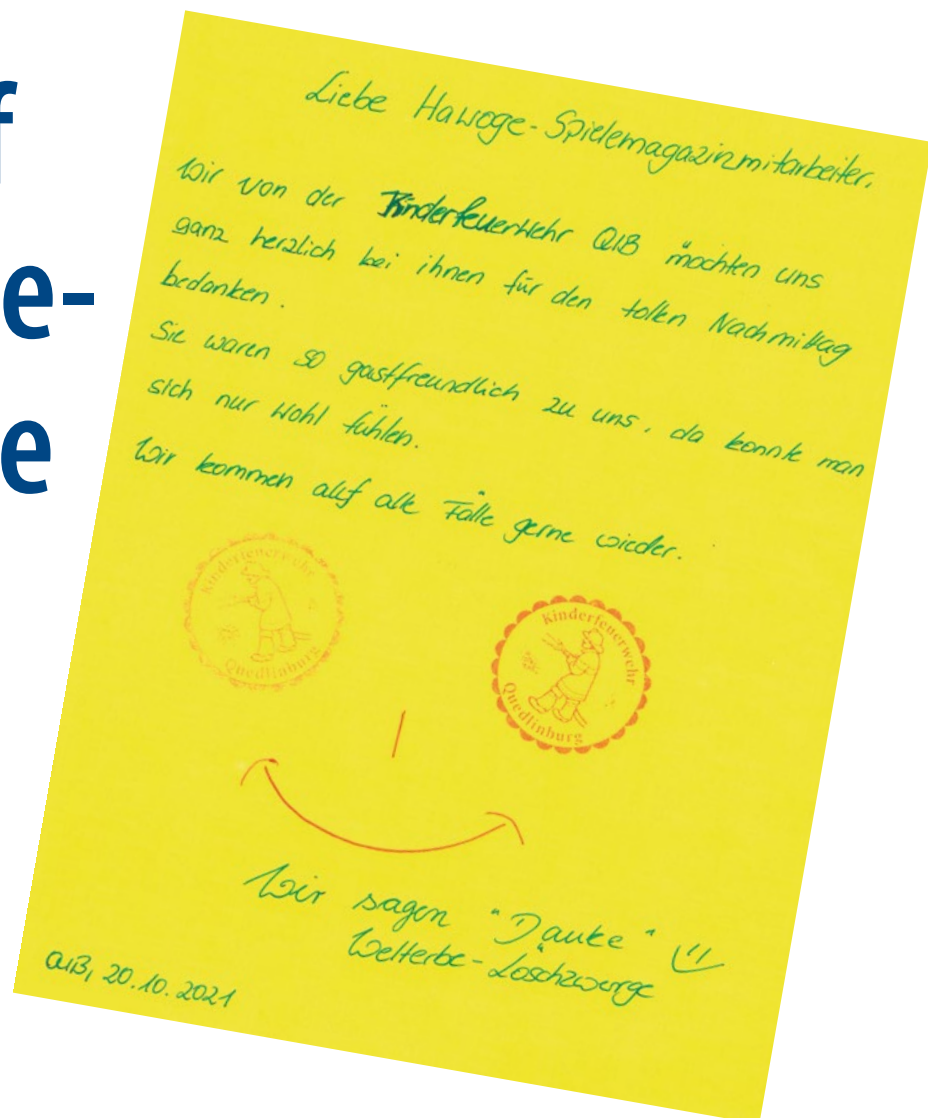 f
e-
e
Liebe Hawoge-Spielemagazinmitarbeiter,
Wir von der Kinderfeuerwehr QLB möchten uns
ganz herzlich bei ihnen für den tollen Nachmittag
bedanken.
Sie waren so gastfreundlich zu uns, da konnte man
sich nur wohl fühlen.
Wir kommen auf alle Fälle gerne wieder.
Kinderfeuerwehr
Quedlinburg
Kinderfeuerwehr
Quedlinburg
Wir sagen "Danke"
Welterbe-Löschzwerge
QLB, 20.10.2021